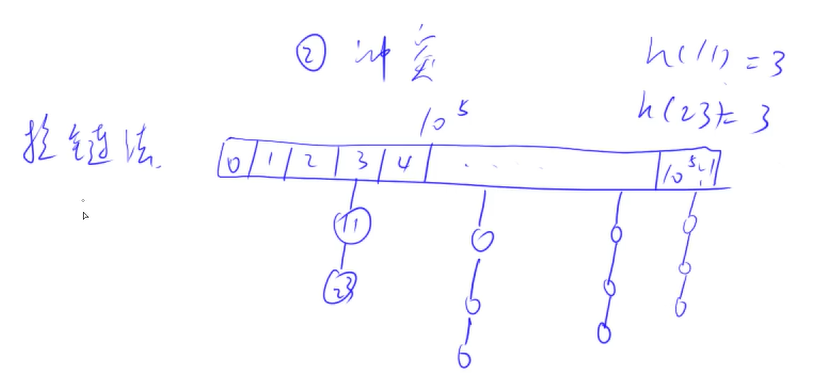 ② 冲突
h(11)=3
h(23)=3
拉链法
10^5
0 1 2 3 4 ..... 10^5-1
11
23